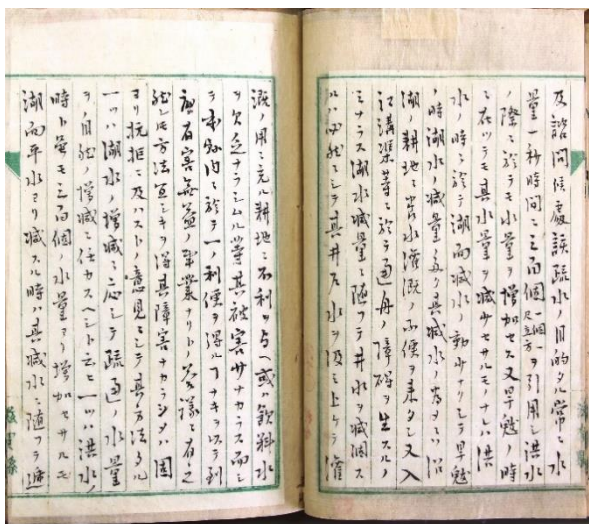 及諮問候處該疏水ノ目的タル常ニ水
量一秒時間ニ三百個一個ハ一尺立方ヲ引用シ洪水
ノ際ニ於テモ水量ヲ増加セス又旱魃ノ時
ニ在ツテモ其水量ヲ減少セサルモノナレハ洪
水ノ時ニ於テ湖面減水ノ動少ナリシテ旱魃
ノ時湖水ノ減量多ク其減水ノ為メニハ沿
湖ノ耕地ニ者水灌漑ノ不便ヲ来タシ又入
江溝渠等ニ於テ通舟ノ障碍ヲ生スルノ
ミナラス湖水減量ニ随フテ井水減個ス
ルハ必然ニシテ其井戸水ヲ汲ミ上ケテ灌
漑ノ用ニ充ル耕地ニ不利ヲ与ヘ或ハ飲料水
ヲ欠乏ナラシムル等其被害少ナカラス而シ
テ本縣内ニ於テ一ノ利便ヲ得ルコナキヲ以テ到
底有害無益ノ事業ナリトノ答議ニ有之
然レモ方法宜シキヲ得其障害ナカラシメハ固
ヨリ抗拒ニ及ハストノ意見ニシテ其方法タル
一ツハ湖水ノ増減ニ応シテ疏通ノ水量
ヲ自然ノ増減ニ仕カスヘシト云ヒ一ツハ洪水ノ
時ト雖モ三百個ノ水量ヨリ増加セサルモ
湖面平水ヨリ減スル時ハ其減水ニ随フテ逓
滋賀縣